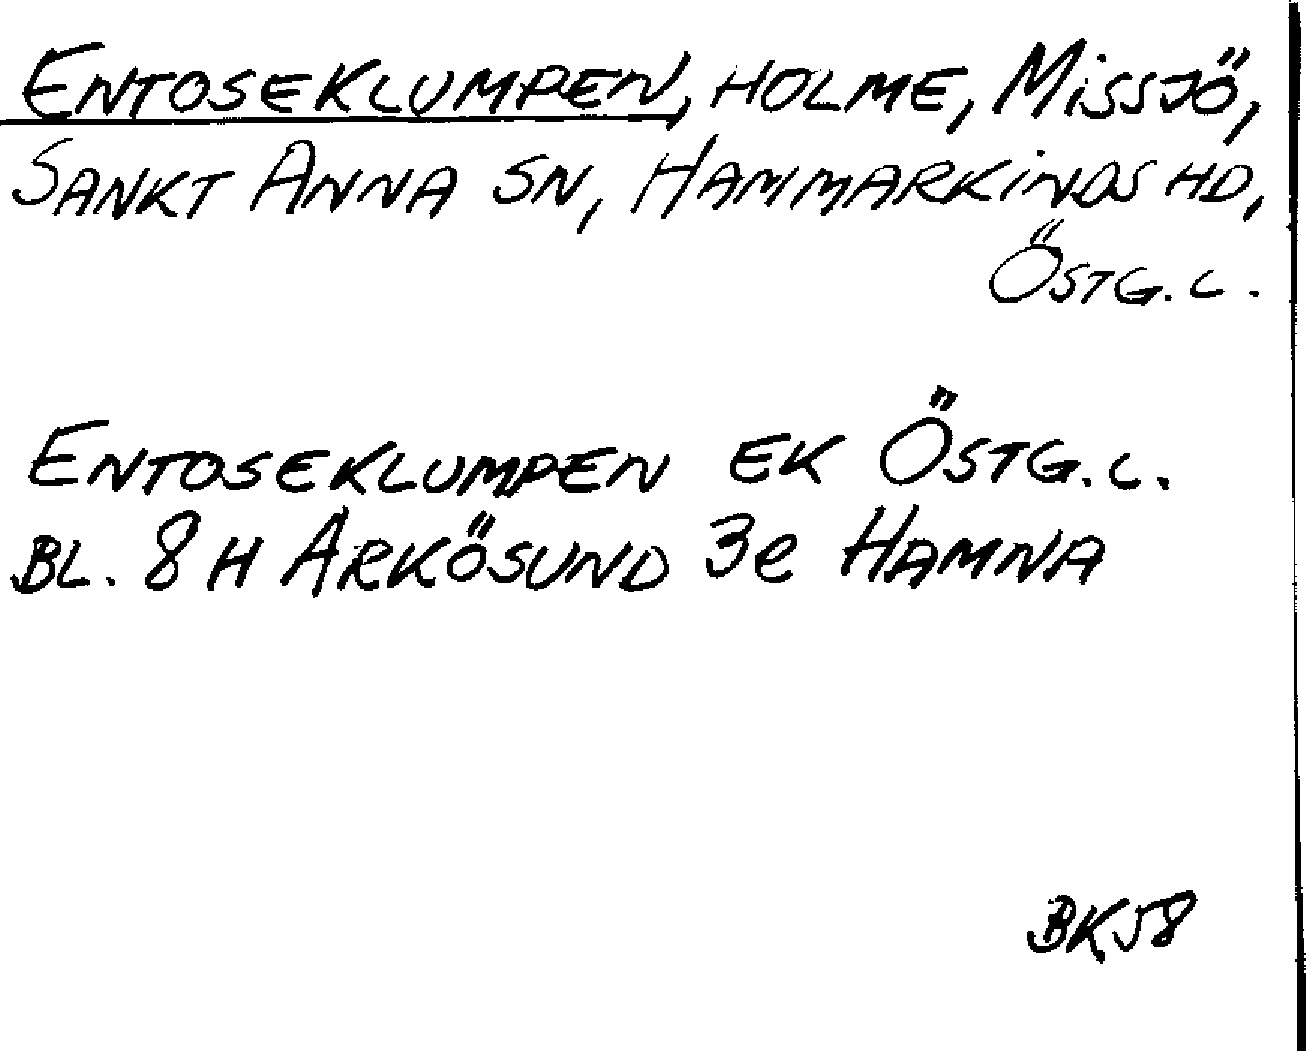 ENTOSEKLUMPEN, HOLME, MISSJÖ,
SANKT ANNA SN, HAMMARKINDS HD,
ÖSTG. L.
ENTOSEKLUMPEN EK ÖSTG. L.
BL. 8 H ARKÖSUND 3e HAMNA
BK58